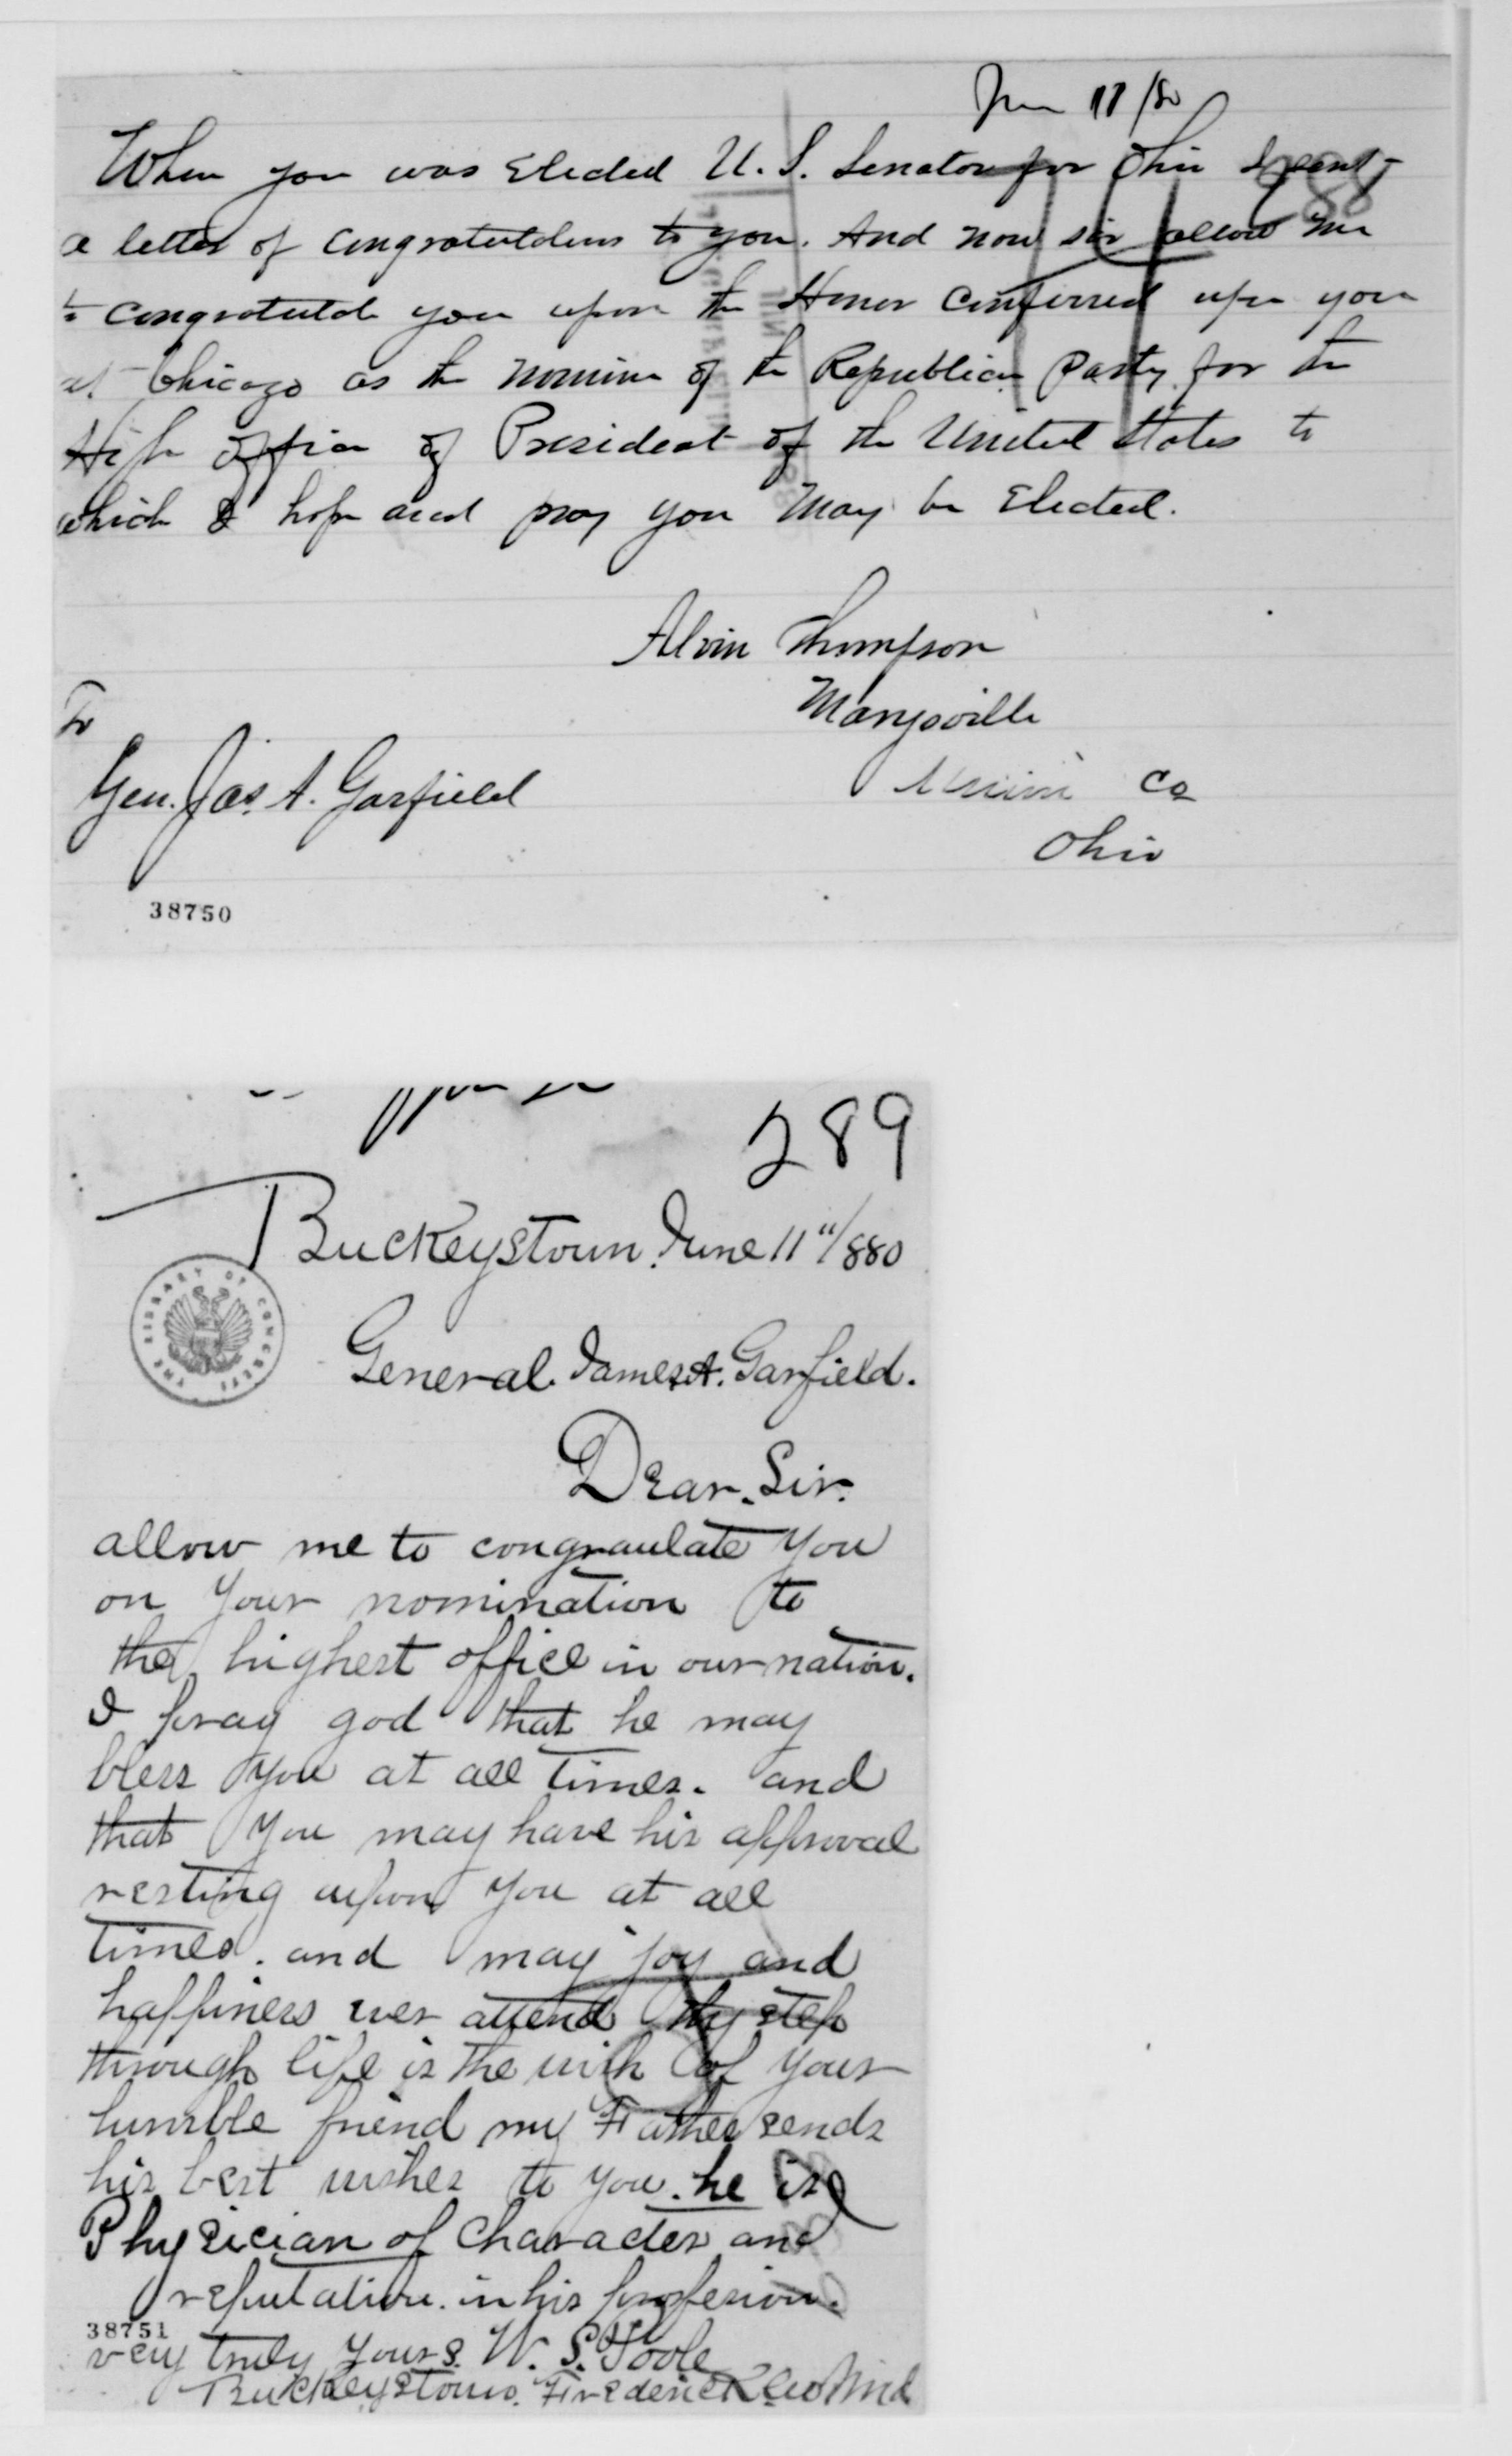 Jun 11/80
288
When you was Elected U. S. Senator for Ohio I sent
a letter of congratutdens to you. And now sir allow me
to congratutd you upon the Honor Conferred upon you
at Chicago as the nominee of the Republican Party for the
High office of President of the United States to
which I hope and pray you may be Elected.
Alvin Thompson
Marysville
Union Co
Ohio
To
Gen. Jas. A. Garfield
38750
289
Buckeystown. June 11"/880
THE LIBRARY OF CONGRESS
General. James A. Garfield.
Dear. Sir.
allow me to congraulate you
on your nomination to
the highest office in our nation.
I pray god that he may
bless you at all times. and
that you may have his approval
resting upon you at all
times. and may joy and
happiness ever attend thy step
through life is the wish of your
humble friend my Father sends
his best wishes to you. he is a
Physician of Character and
reputation. in his profesion.
38751
very truly yours. W. S. Poole
Buckeystown. Frederick Co Md